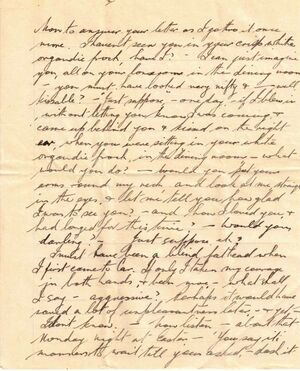 Now to answer your letter as I go thro it once
more. I haven't seen you in your crisp white
organdie frock, have I? - I can just imagine
you, all on your lonesome in the dining room
you must have looked very nifty & - well
kissable? - Just suppose, one day, if I blew in
without letting you know I was coming &
came up behind you & kissed on the right
ear, when you were sitting in your white
organdie frock, in the dining room - what
would you do? - would you put your
arms round my neck and look at me straight
in the eyes, & let me tell you how glad
I was to see you? - and how I loved you &
had longed for this time? - would you
darling? Just suppose it?
I must have been a blind fathead when
I first came to
I only taken my courage
in both hands, & been more - what shall
I say - aggressive; perhaps it would have
saved a lot of unpleasantness later, & yet -
I don't know. - now listen - about that
Monday night at Easter - You say it's
manners to wait till you're asked, - dash it